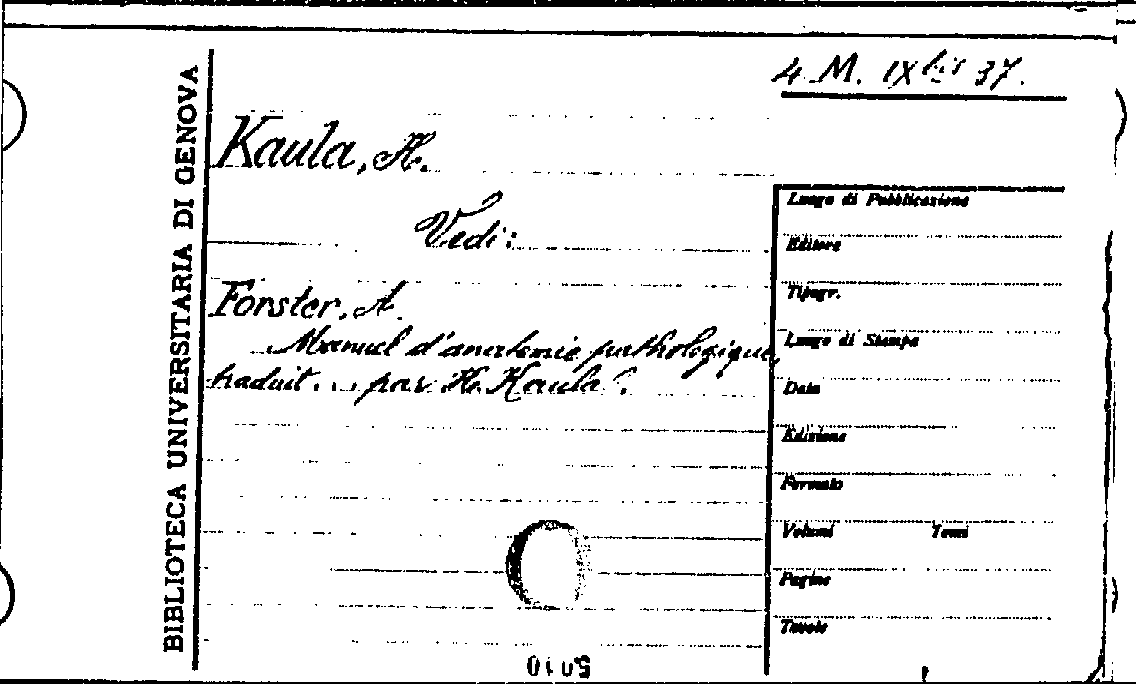 4 M. IX bis 37.
BIBLIOTECA UNIVERSITARIA DI GENOVA
Kaula, H.
Vedi:
Forster, A.
Manuel d'anatomie pathologique,
traduit... par H. Kaula.
Luogo di Pubblicazione
Editore
Tipogr.
Luogo di Stampa
Data
Edizione
Formato
Volumi Tomi
Pagine
Tavole